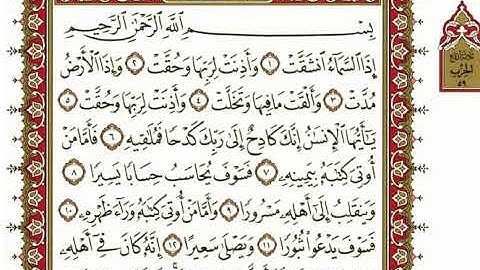 بِسْمِ اللَّهِ الرَّحْمَٰنِ الرَّحِيمِ
إِذَا السَّمَاءُ انشَقَّتْ ١ وَأَذِنَتْ لِرَبِّهَا وَحُقَّتْ ٢ وَإِذَا الْأَرْضُ
مُدَّتْ ٣ وَأَلْقَتْ مَا فِيهَا وَتَخَلَّتْ ٤ وَأَذِنَتْ لِرَبِّهَا وَحُقَّتْ ٥
يَٰأَيُّهَا الْإِنسَٰنُ إِنَّكَ كَادِحٌ إِلَىٰ رَبِّكَ كَدْحًا فَمُلَٰقِيهِ ٦ فَأَمَّا مَنْ
أُوتِيَ كِتَٰبَهُۥ بِيَمِينِهِۦ ٧ فَسَوْفَ يُحَاسَبُ حِسَابًا يَسِيرًا ٨
وَيَنقَلِبُ إِلَىٰ أَهْلِهِۦ مَسْرُورًا ٩ وَأَمَّا مَنْ أُوتِيَ كِتَٰبَهُۥ وَرَاءَ ظَهْرِهِۦ ١٠
فَسَوْفَ يَدْعُوا ثُبُورًا ١١ وَيَصْلَىٰ سَعِيرًا ١٢ إِنَّهُۥ كَانَ فِي أَهْلِهِۦ
الحزب
٥٩